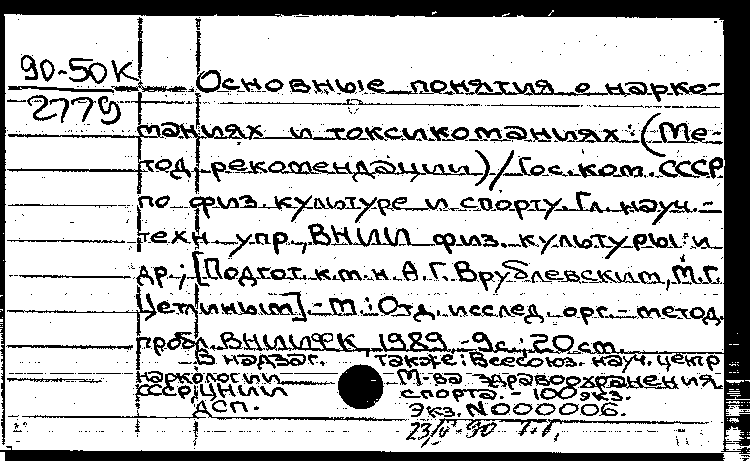 90-50К
2779
Основные понятия о нарко-
маниях и токсикоманиях: (Ме-
тод. рекомендации)/Гос. ком. СССР
по физ. культуре и спорту. Гл. науч.-
техн. упр., ВНИИ физ. культуры и
др.; [Подгот. к.м.н. А.Г. Врублевским, М.Г.
Цетлиным]. - М.: Отд. исслед. орг.-метод.
пробл. ВНИИФК, 1989. - 9с.; 20 см.
В надзаг. также: Всесоюз. науч. центр
наркологии М-ва здравоохранения
СССР, ЦНИИ спорта. - 100 экз.
ДСП. Экз. N000006.